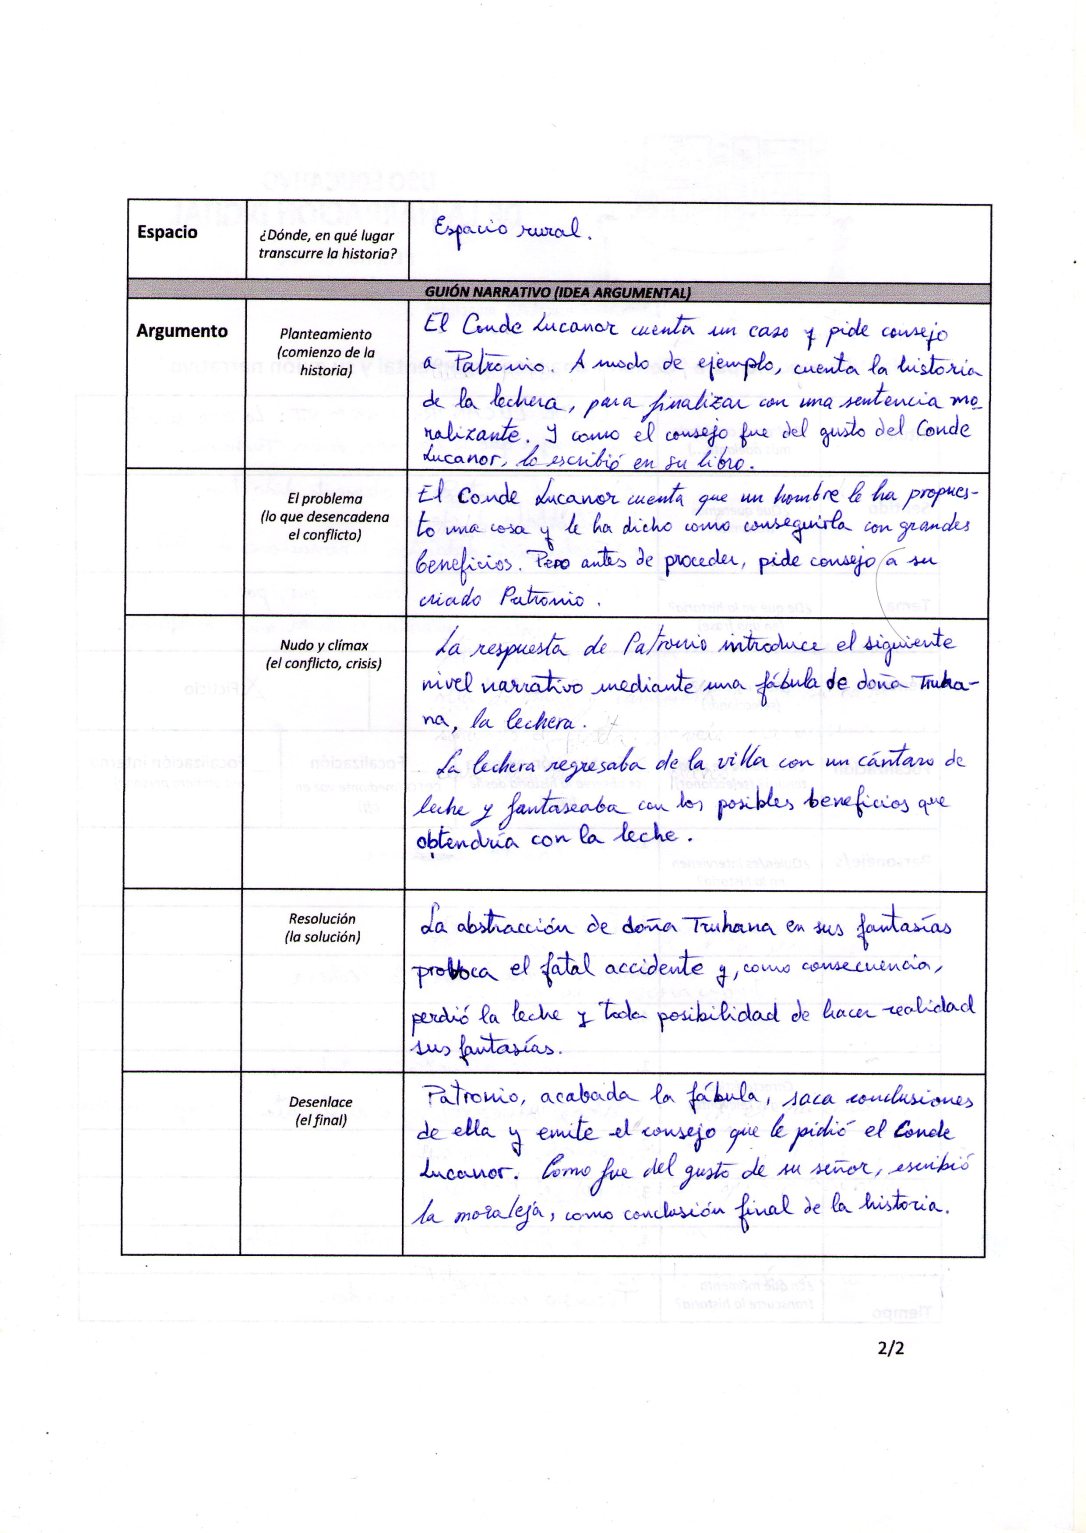 Espacio
¿Dónde, en qué lugar
transcurre la historia?
Espacio rural.
GUIÓN NARRATIVO (IDEA ARGUMENTAL)
Argumento
Planteamiento
(comienzo de la
historia)
El Conde Lucanor cuenta un caso y pide consejo
a Patronio. A modo de ejemplo, cuenta la historia
de la lechera, para finalizar con una sentencia mo-
ralizante. Y como el consejo fue del gusto del Conde
Lucanor, lo escribió en su libro.
El problema
(lo que desencadena
el conflicto)
El Conde Lucanor cuenta que un hombre le ha propues-
to una cosa y le ha dicho como conseguirla con grandes
beneficios. Pero antes de proceder, pide consejo a su
criado Patronio.
Nudo y clímax
(el conflicto, crisis)
La respuesta de Patronio introduce el siguiente
nivel narrativo mediante una fábula de doña Truha-
na, la lechera.
La lechera regresaba de la villa con un cántaro de
leche y fantaseaba con los posibles beneficios que
obtendría con la leche.
Resolución
(la solución)
La abstracción de doña Truhana en sus fantasías
provoca el fatal accidente y, como consecuencia,
perdió la leche y toda posibilidad de hacer realidad
sus fantasías.
Desenlace
(el final)
Patronio, acabada la fábula, saca conclusiones
de ella y emite el consejo que le pidió el Conde
Lucanor. Como fue del gusto de su señor, escribió
la moraleja, como conclusión final de la historia.
2/2